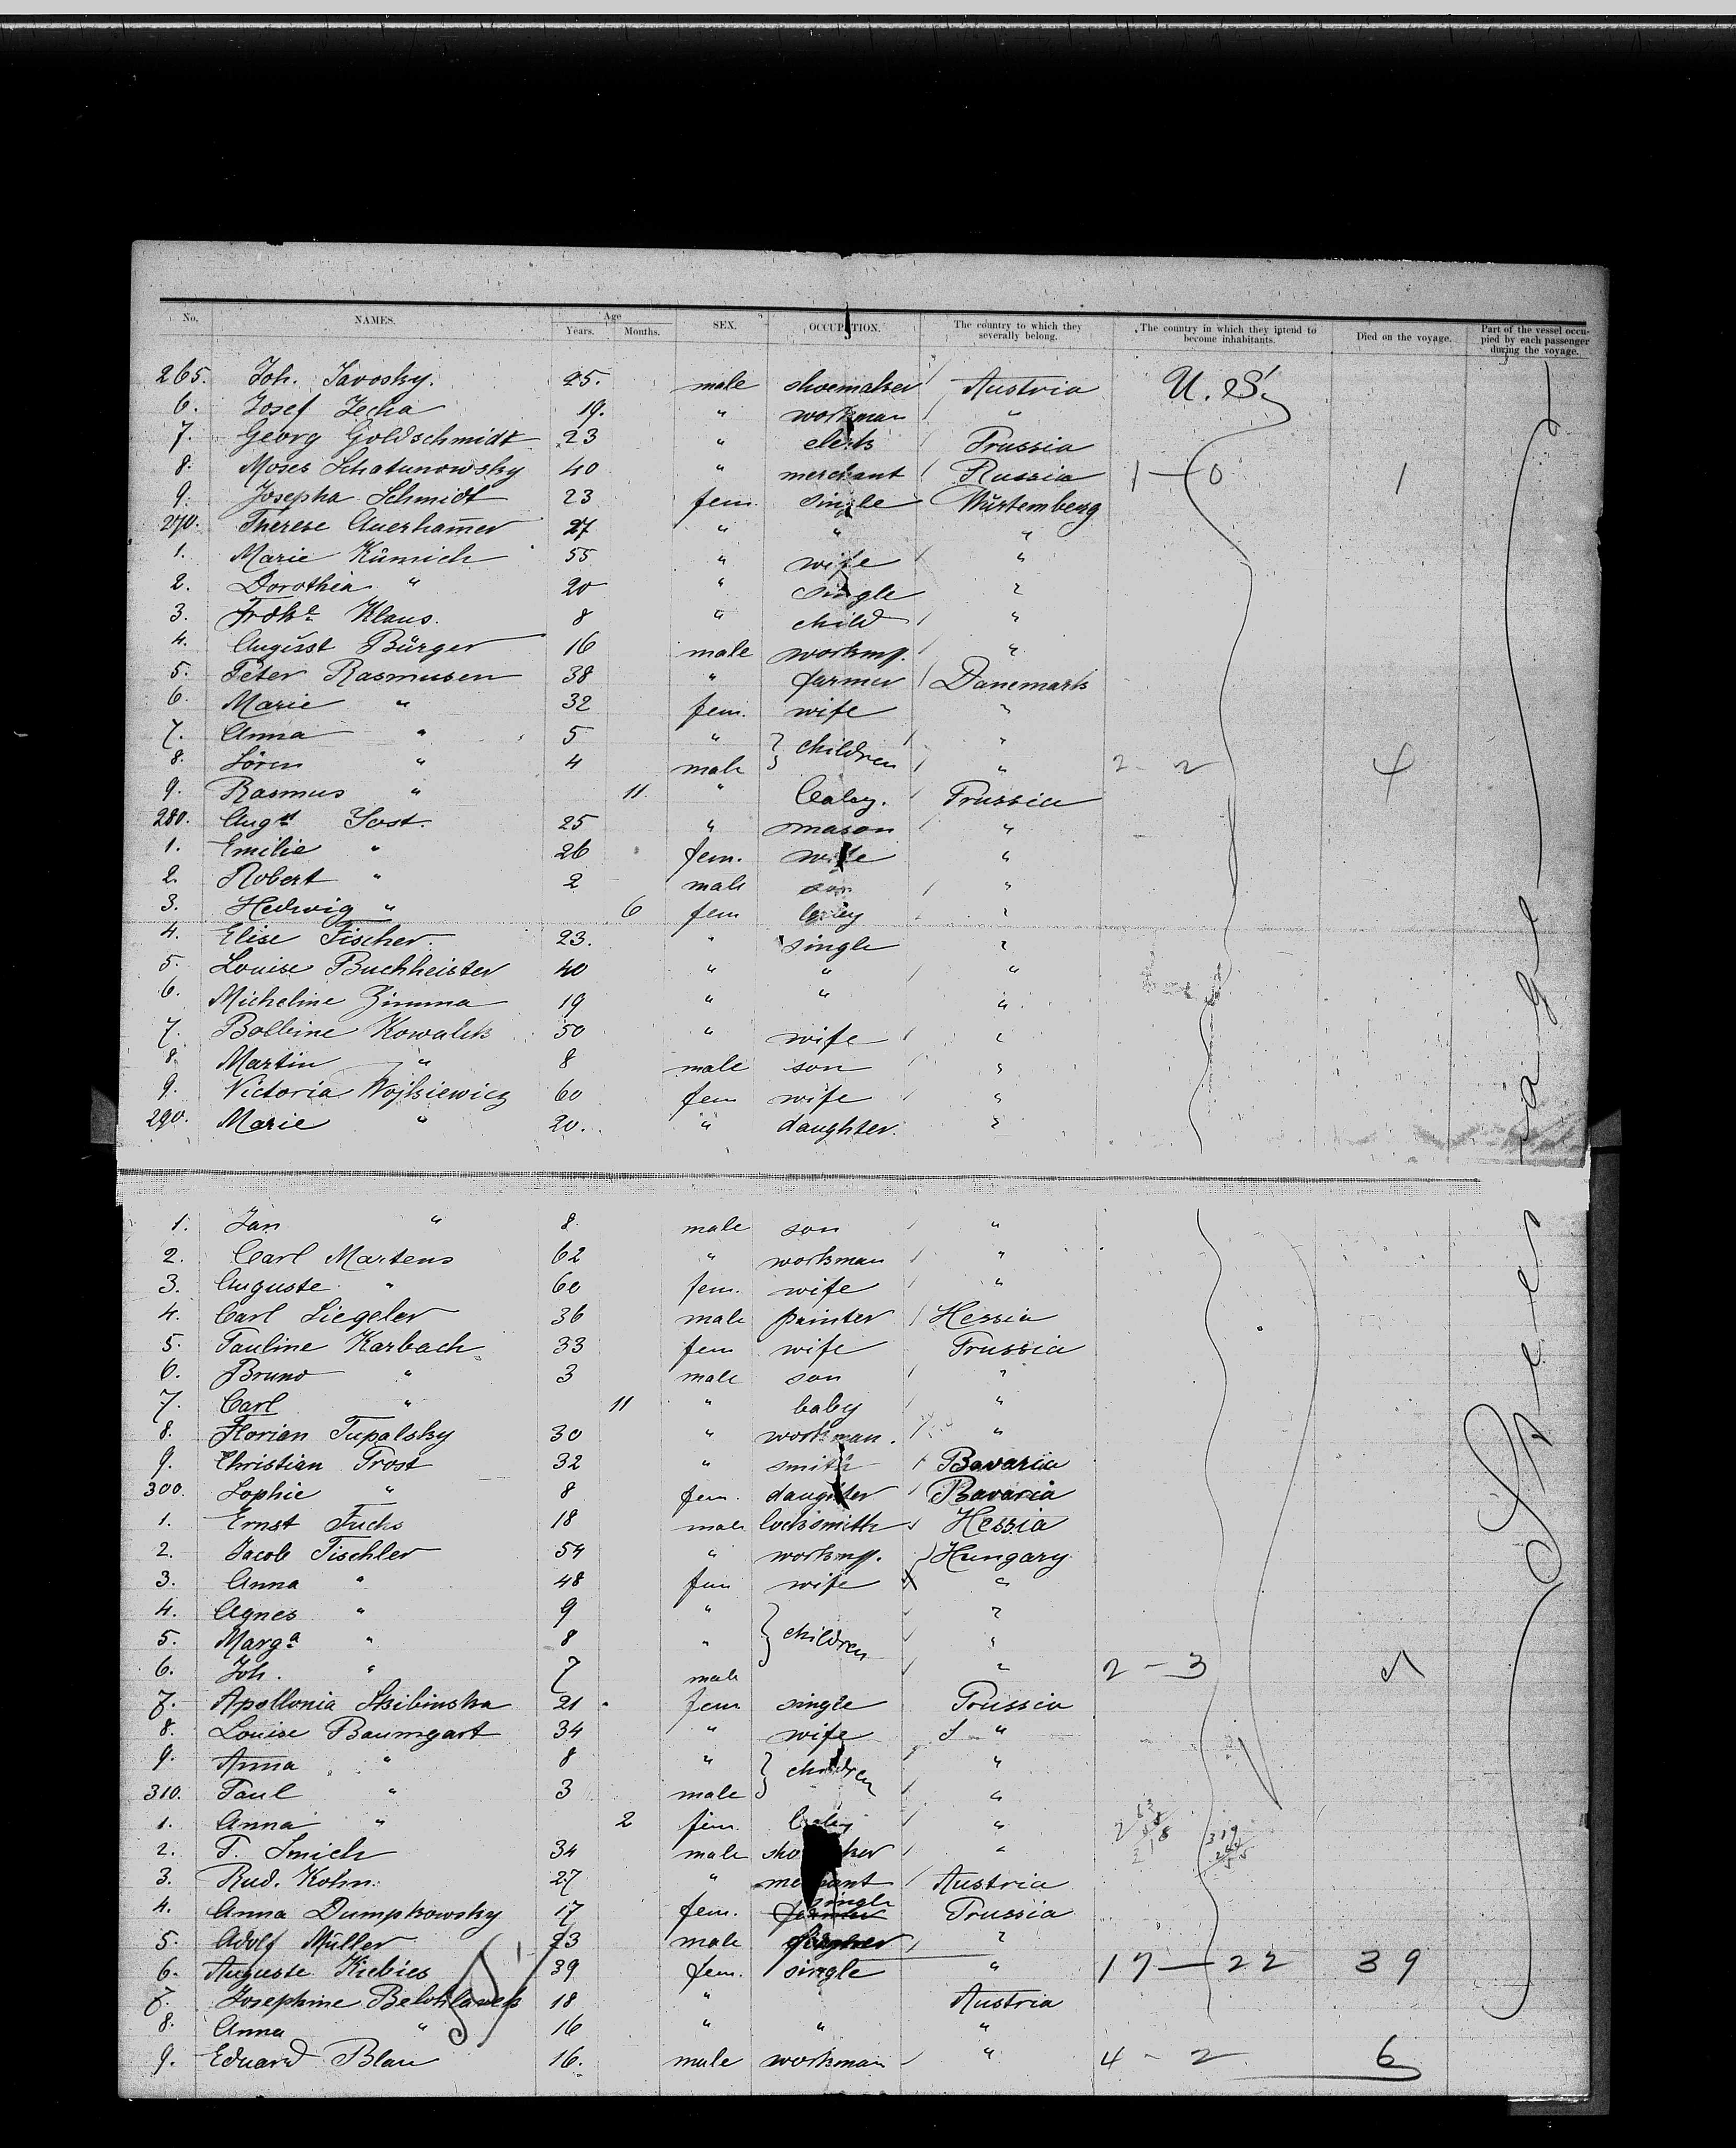 No. NAMES. Age Years. Months. SEX. OCCUPATION. The country to which they severally belong. The country in which they intend to become inhabitants. Died on the voyage. Part of the vessel occupied by each passenger during the voyage.
265. Joh. Savosky. 25. male shoemaker Austria U. S.
6. Josef Zecha 19. " workman "
7. Georg Goldschmidt 23 " clerk Prussia
8. Moses Schatunowsky 40 " merchant Russia 1 - 0 1
9. Josepha Schmidt 23 fem. single Würtemberg
270. Therese Auerham̄er 27 " " "
1. Marie Kümich 55 " wife "
2. Dorothea " 20 " single "
3. Frdke Klaus. 8 " child "
4. August Bürger 16 male workmn. "
5. Peter Rasmusen 38 " farmer Danemark
6. Marie " 32 fem. wife "
7. Anna " 5 " } children "
8. Sören " 4 male "  2 - 2 4
9. Rasmus " 11. " baby. Prussia
280. Augst Jost. 25 " mason "
1. Emilie " 26 fem. wife "
2. Robert " 2 male son "
3. Hedwig " 6 fem baby "
4. Elise Fischer. 23. " single "
5. Louise Buchheister 40 " " "
6. Micheline Zimma 19 " " "
7. Balbine Kowalek 50 " wife "
8. Martin " 8 male son "
9. Victoria Wojkiewicz 60 fem wife "
290. Marie " 20. " daughter. "
1. Jan " 8. male son "
2. Carl Martens 62 " workman "
3. Auguste " 60 fem. wife "
4. Carl Siegeler 36 male painter Hessia
5. Pauline Karbach 33 fem wife Prussia
6. Bruno " 3 male son "
7. Carl " 11 " baby "
8. Florian Tupalsky 30 " workman. "
9. Christian Prost 32 " smith Bavaria
300. Sophie " 8 fem. daughter Bavaria
1. Ernst Fuchs 18 male locksmith Hessia
2. Jacob Tischler 54 " workmn. Hungary
3. Anna " 48 fem wife "
4. Agnes " 9 " } children "
5. Marga " 8 " "
6. Joh. " 7 male " 2 - 3
7. Apollonia Skibinska 21 fem. single Prussia
8. Louise Baumgart 34 " wife "
9. Anna " 8 " } children "
310. Paul " 3 male "
1. Anna " 2 fem. baby "
2. F. Smich 34 male shoemaker "
3. Rud. Kohn. 27 " merchant Austria
4. Anna Dumpkowsky 17 fem. single Prussia
5. Adolf Müller 23 male "
6. Auguste Kiebies 39 fem. single " 17 - 22 39
7. Josephine Belohlavek 18. " Austria
8. Anna " 16 " " "
9. Eduard Blau 16. male workman " 4 - 2 6
Steerage